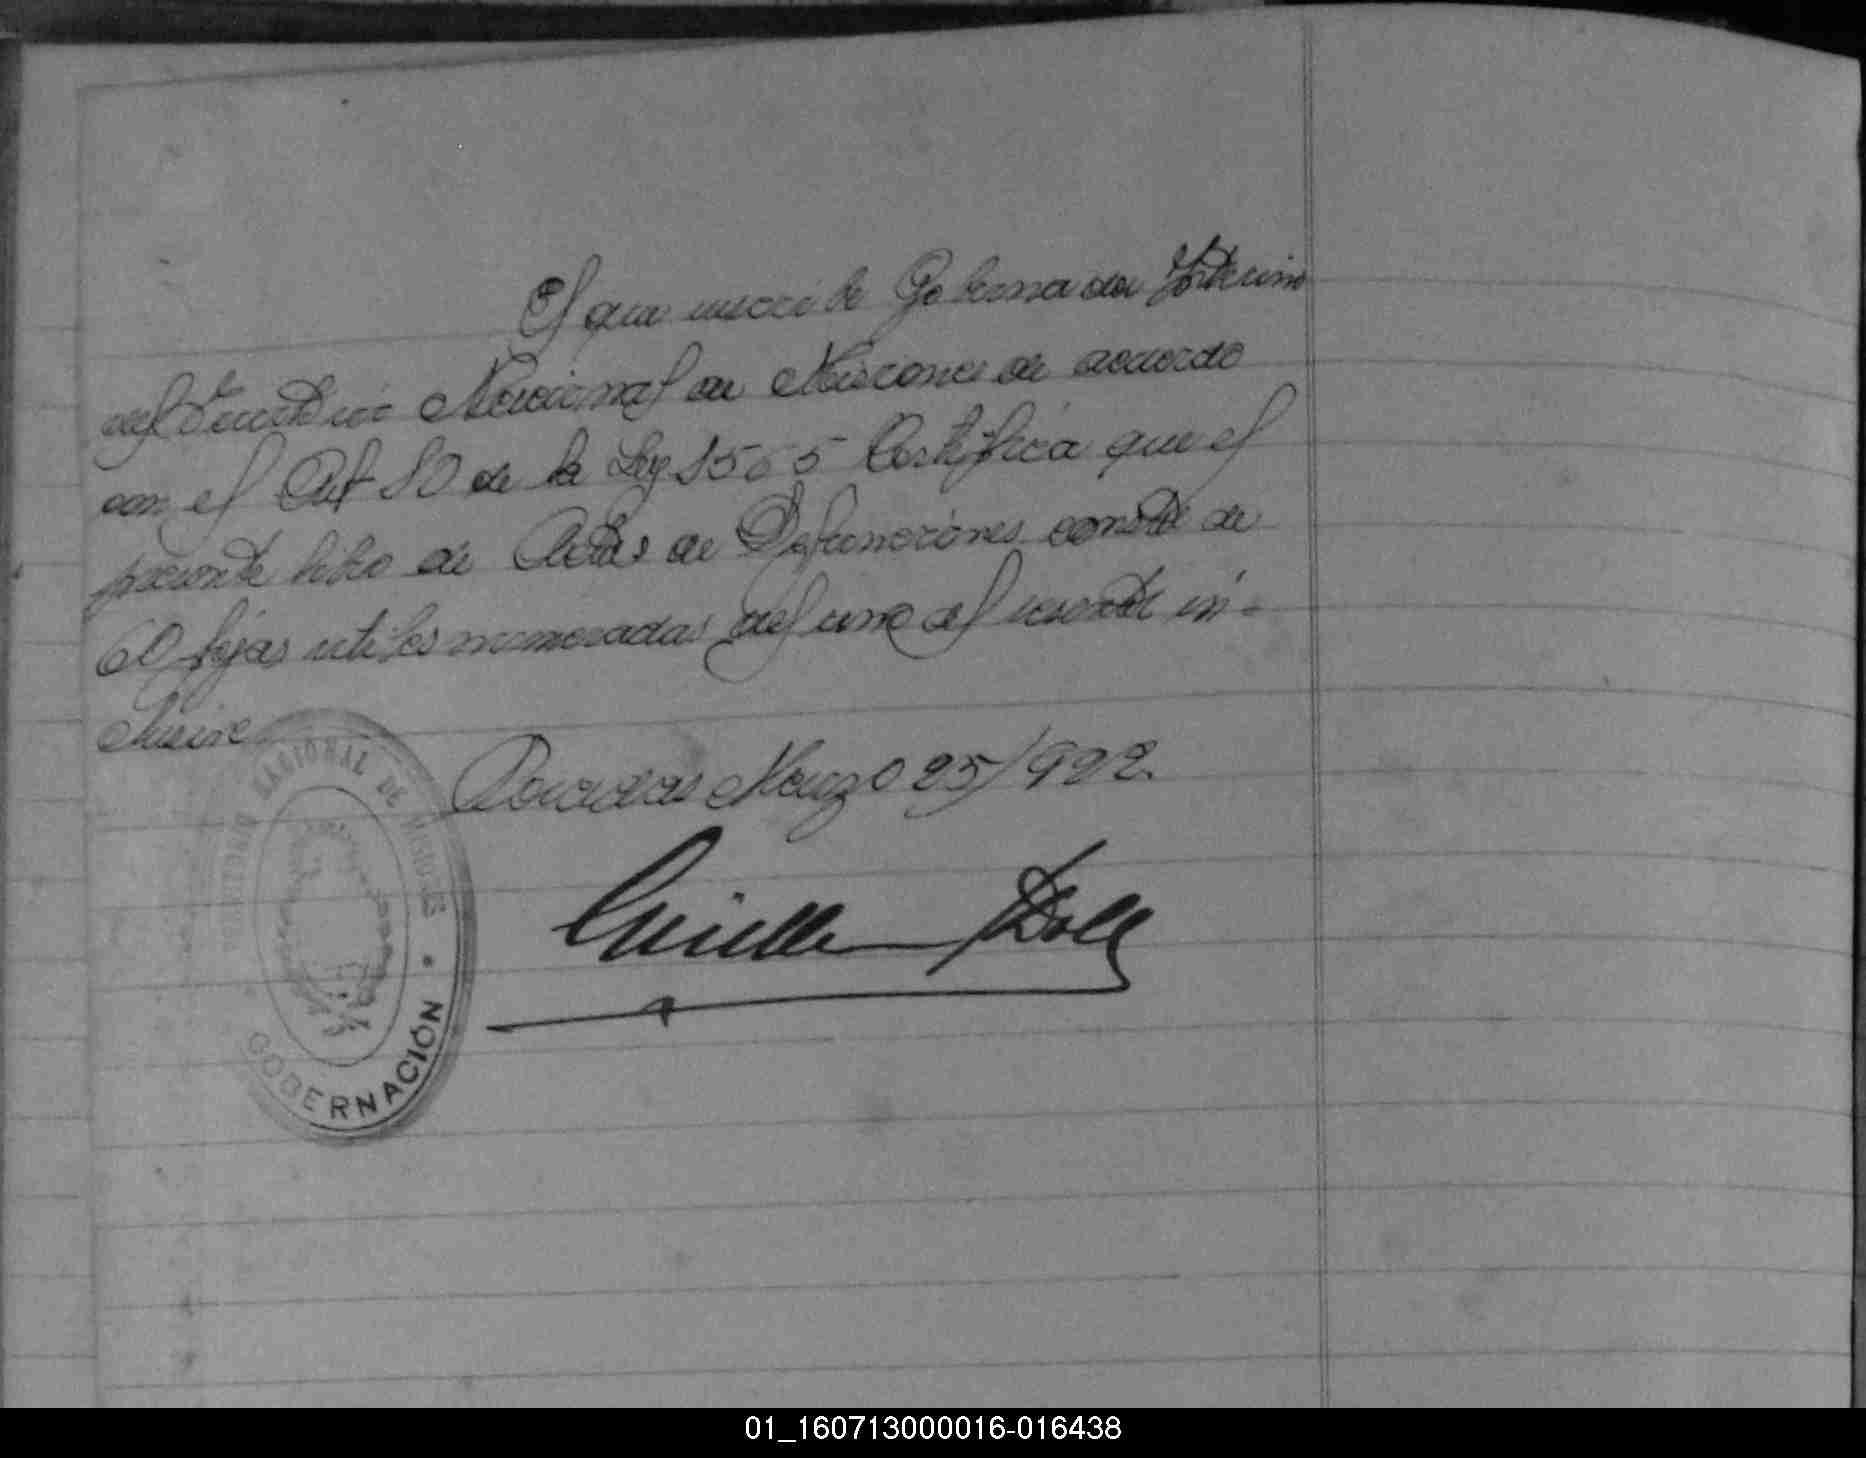 El que suscribe Gobernador Interino
del Territorio Nacional de Misiones de acuerdo
con el Art 80 de la Ley 1565 Certifica que el
presente libro de Actas de Defunciones consta de
60 fojas utiles numeradas del uno al sesenta in-
clusive
Posadas Marzo 25/922.
TERRITORIO NACIONAL DE MISIONES
GOBERNACIÓN
01_160713000016-016438